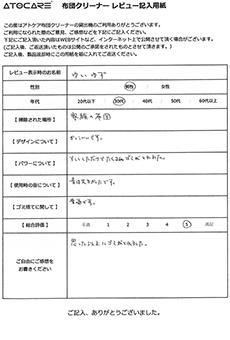 ATOCARE 布団クリーナー レビュー記入用紙
この度はアトケア布団クリーナーの貸出機のご利用ありがとうございます。
ご利用になられた際のご意見、ご感想などを下記にご記入ください。
下記にご記入頂いた内容はWEBサイトなど、インターネット上で公開させて頂く場合がございます。
(ご記入後、ご返送頂いたものは公開のご承諾をされたものとさせて頂きます。)
ご記入後、製品返却時にこの用紙を箱に入れてご返送ください。
レビュー表示時のお名前 ゆいゆず
性別 男性 ・ 女性
年代 20代以下 30代 40代 50代 60代以上
【掃除された場所】 家族の布団
【デザインについて】 かっこいいです。
【パワーについて】
【使用時の音について】 音は大きかったです。
【ゴミ捨てに関して】 普通です。
【総合評価】 不満 1 2 3 4 5 満足
ご自由にご感想を
お書きください
思った以上にゴミがとれました。
ご記入、ありがとうございました。